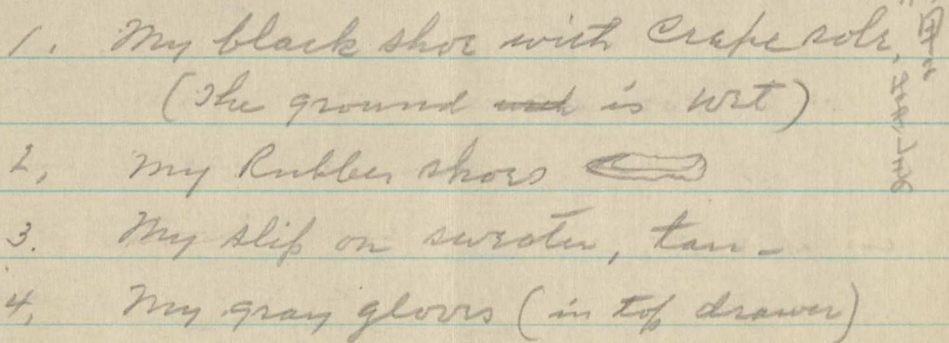 1. My black shoe with Crape sole,
(The ground is wet)
2, My Rubber shoes
3. My slip on sweater, tan -
4, My gray gloves (in top drawer)